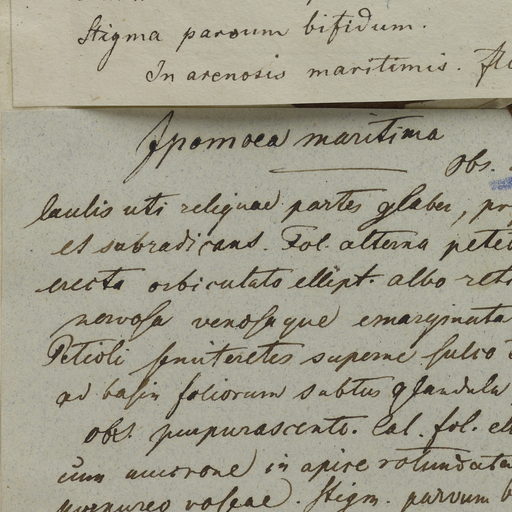 Stigma parvum bifidum.
In arenosis maritimis. Fl
Ipomoea maritima
Obs.
Caulis uti reliquae partes glaber, pr
et subradicans. Fol. alterna peti
erecta orbiculato ellipt. albo reti
nervosa venosaque emarginata
Petioli semiteretes superne sulco
ad basin foliorum subtus glandula
obs. purpurascente. Cal. fol. ell
cum mucrone in apice rotundata
purpureo roseae. Stigm. parvum b